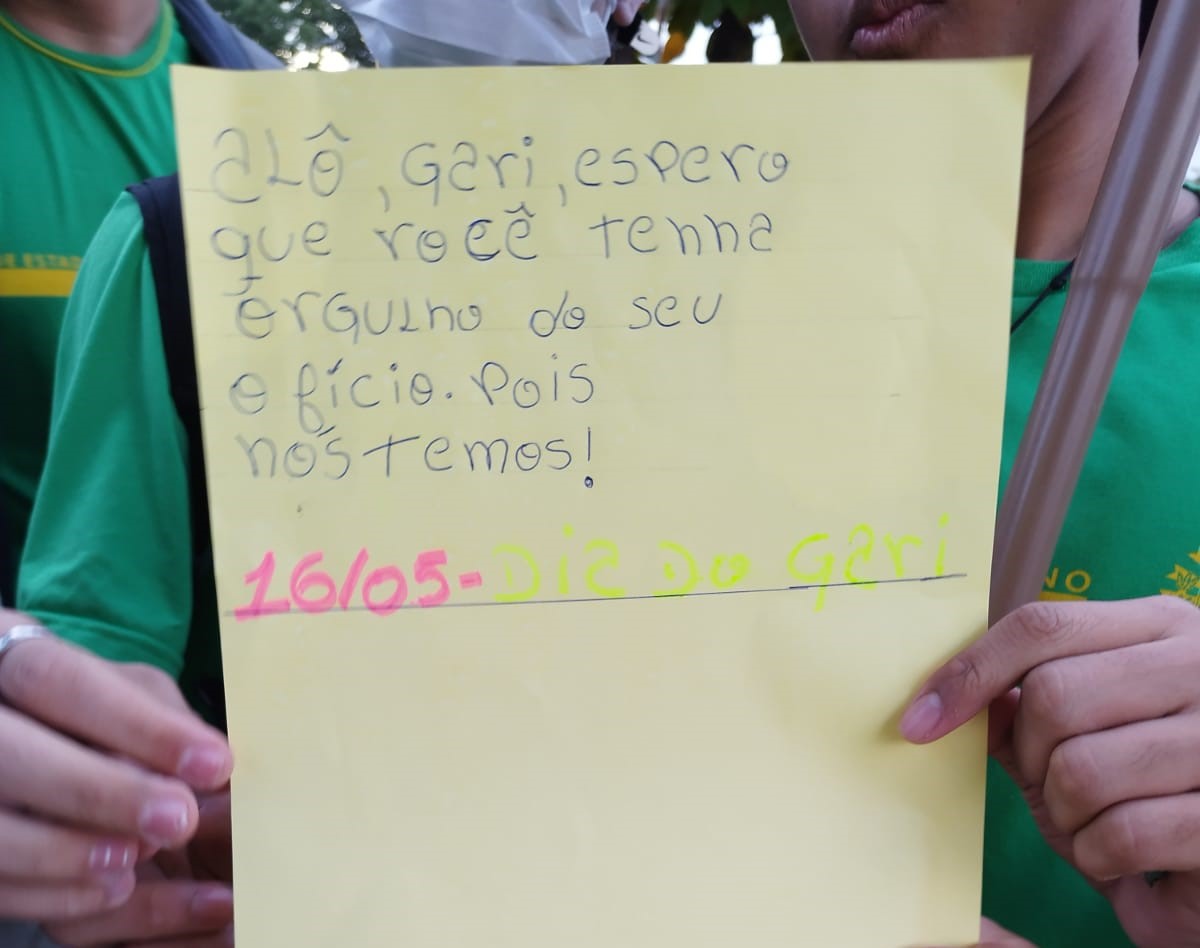 aLÔ, Gari, espero
que você tenha
orgulho do seu
ofício. Pois
nós temos!
16/05 - Dia Do Gari
DE ESTAD
NO